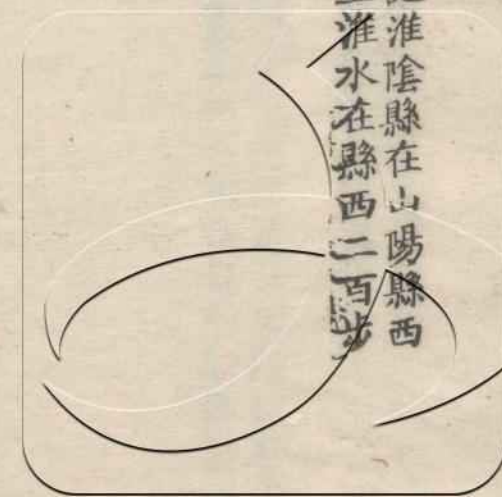 淮陰縣在山陽縣西
淮水在縣西二百步